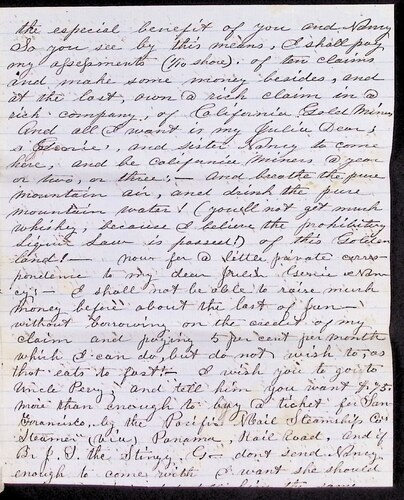 the especial benefit of you and Nancy
So you see by this means, I shall pay
my assessments (To shore). of ten claims
and make some money besides, and
at the last, own a rich claim in a
rich company, of California Gold Mines
And all I want is my Julia Dear,
& Eserie, and sister Nancy to come
here, and be California Miners a year
or two, or three;— and breathe the pure
mountain air, and drink the pure
mountain water! (you'll not get much
whiskey, because I believe the prohibitory
Liquor Law is passed!) of this Golden
land!— now for a little private corres-
pondence to my dear Eserie Nan-
cy;— I shall not be able to raise much
money before about the last of
without borrowing on the credit of my
claim and paying 5 per cent per month
which I can do, but do not wish to, as
that eats to fast!— I wish you to go to
Uncle Percy; and tell him you want $,75-
more than enough to buy a ticket for San
Francisco, by the Pacific Mail Steamship Co's
Steamer (via) Panama, Rail Road, and if
Br J. T. the Stingy, don't send Nancy
enough to come with I want she should